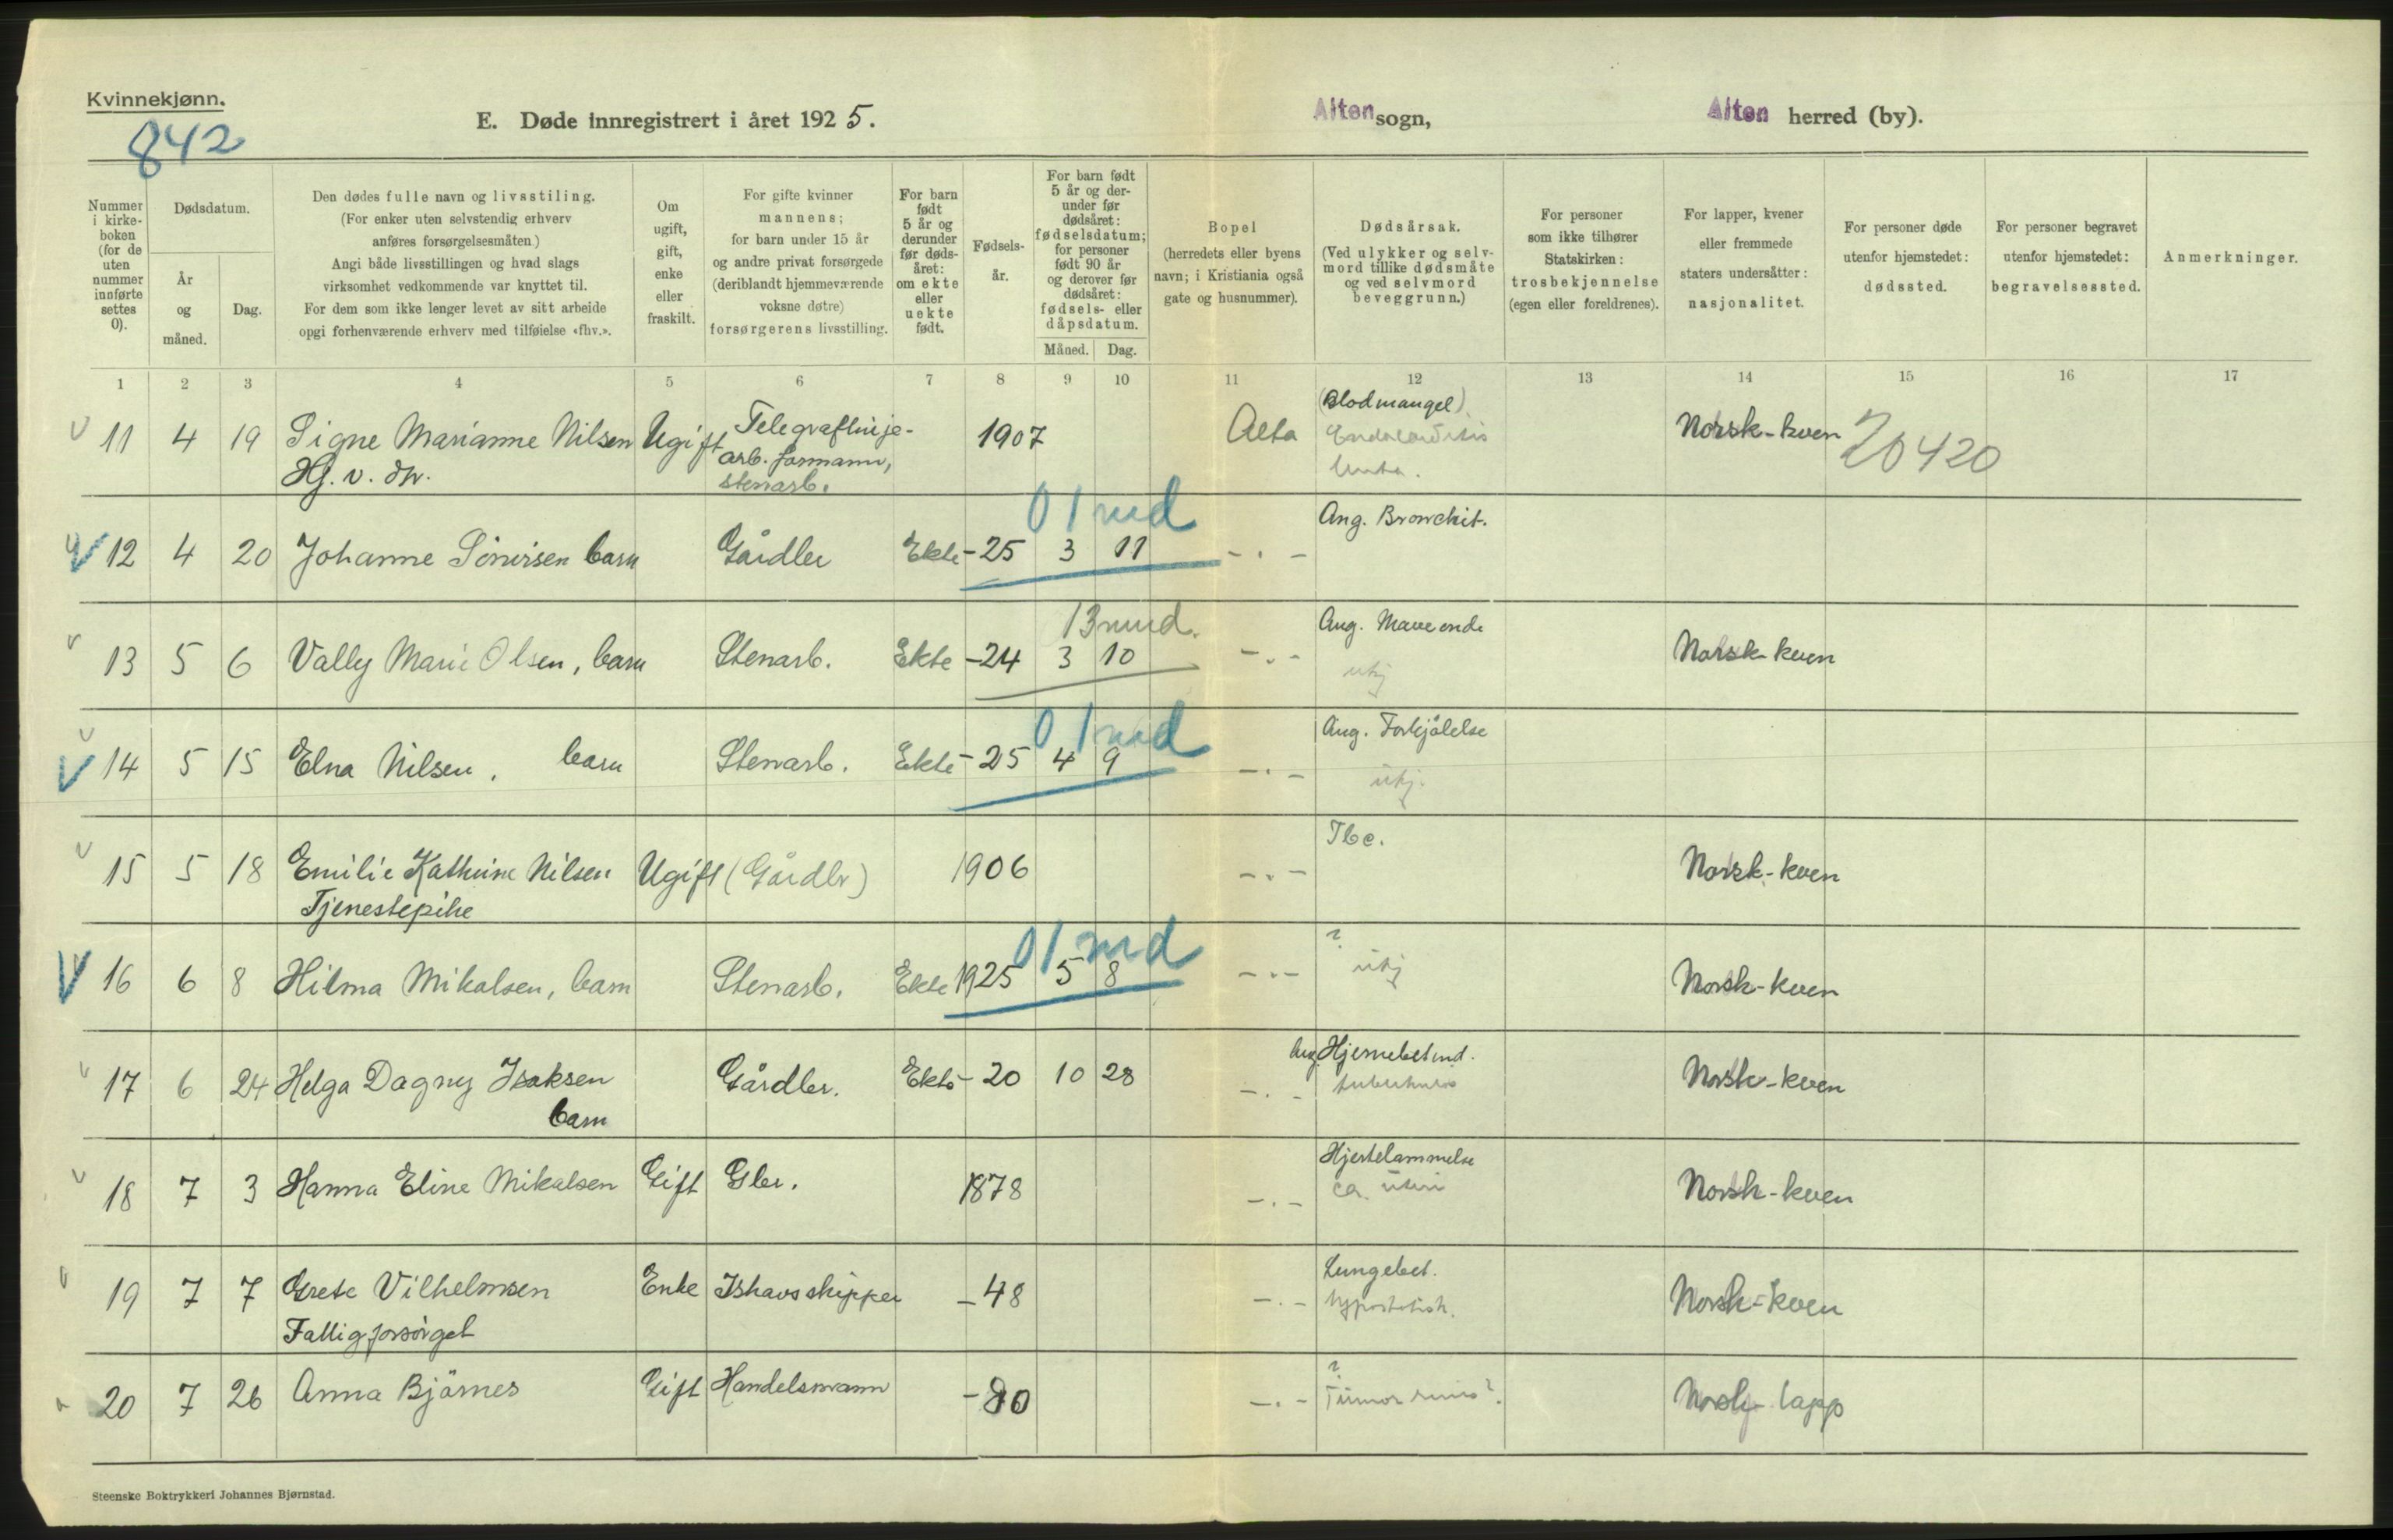 Kvinnekjønn.
842
E. Døde innregistrert i året 1925.
Alten sogn,
Alten herred (by).
Nummer i kirke- boken (for de uten nummer innførte settes 0).
Dødsdatum.
År og måned.
Dag.
Den dødes fulle navn og livsstiling.
(For enker uten selvstendig erhverv
anføres forsørgelsesmåten.)
Angi både livsstillingen og hvad slags
virksomhet vedkommende var knyttet til.
For dem som ikke lenger levet av sitt arbeide
opgi forhenværende erhverv med tilføielse «fhv.».
Om ugift, gift, enke eller fraskilt.
For gifte kvinner
mannens;
for barn under 15 år
og andre privat forsørgede
(deriblandt hjemmeværende
voksne døtre)
forsørgerens livsstilling.
For barn født 5 år og derunder før døds- året: om ekte eller uekte født.
Fødsels- år.
For barn født 5 år og der- under før dødsåret: fødselsdatum; for personer født 90 år og derover før dødsåret: fødsels- eller dåpsdatum.
Måned.
Dag.
Bopel
(herredets eller byens
navn; i Kristiania også
gate og husnummer).
Dødsårsak.
(Ved ulykker og selv-
mord tillike dødsmåte
og ved selvmord
beveggrunn.)
For personer
som ikke tilhører
Statskirken:
trosbekjennelse
(egen eller foreldrenes).
For lapper, kvener
eller fremmede
staters undersåtter:
nasjonalitet.
For personer døde
utenfor hjemstedet:
dødssted.
For personer begravet
utenfor hjemstedet:
begravelsessted.
Anmerkninger.
1 2 3 4 5 6 7 8 9 10 11 12 13 14 15 16 17
11 4 19 Signe Marianne Nilsen Ugift Telegraflinje- 1907 Alta (Blodmangel) Norsk-kven 20420
Hj. v. dtr. arb. formann,
stenarb.
01 md
12 4 20 Johanne Sönvisen barn Gårdbr Ekte -25 3 11 -.- Ang. Bronchit.
13 mnd.
13 5 6 Vally Marie Olsen, barn Stenarb. Ekte -24 3 10 -.- Ang. Maveonde Norsk-kven
ukj
01 md
14 5 15 Elna Nilsen, barn Stenarb. Ekte -25 4 9 -.- Ang. Forkjölelse
ukj.
15 5 18 Emilie Kathrine Nilsen Ugift (Gårdbr) 1906 -.- Tbc. Norsk-kven
Tjenestepike
01 md
16 6 8 Hilma Mikalsen, barn Stenarb. Ekte 1925 5 8 -.- ? Norsk-kven
ukj
17 6 24 Helga Dagny Isaksen Gårdbr. Ekte -20 10 28 -.- Ang. Hjernebetend. Norsk-kven
barn tuberkulös
18 7 3 Hanna Eline Mikalsen Gift Gbr. 1878 -.- Hjertelammelse Norsk-kven
ca. uteri
19 7 7 Grete Vilhelmsen Enke Ishavsskipper -48 -.- Lungebet. Norsk-kven
Fattigforsörget hypostatisk.
20 7 26 Anna Björnes Gift Handelsmann -80 -.- ? Norsk-lapp
Tumor renis?
Steenske Boktrykkeri Johannes Bjørnstad.